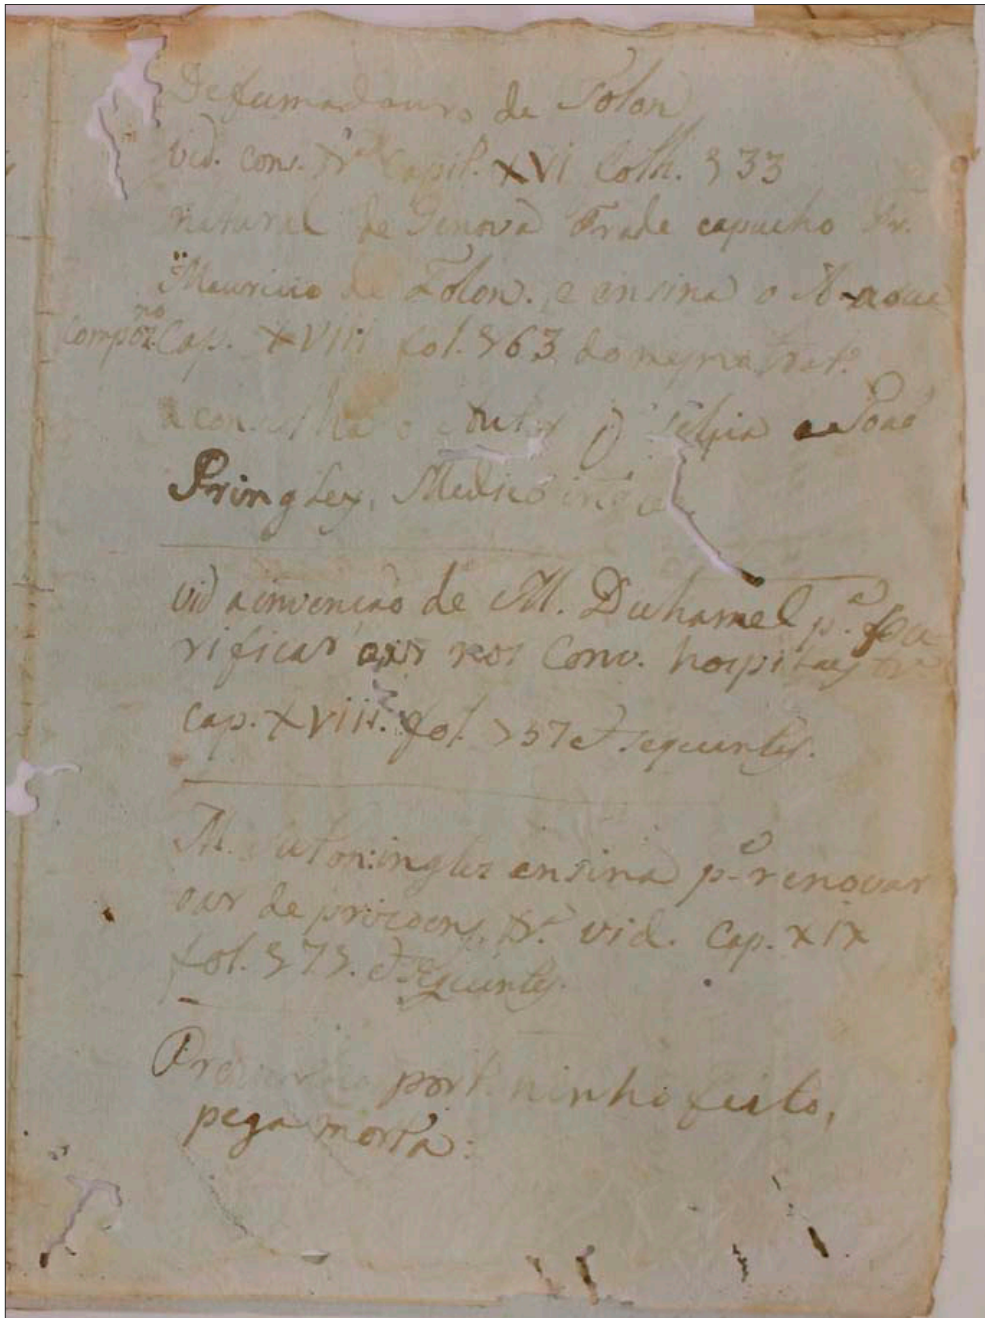 Defumadouro de Tolon
vid. cons. Capit. XVI Coll. 533
natural de Genova Frade capucho Fr.
Mauricio de Tolon. e ensina o
compoz. no Cap. XVIII fol. 563 do mesmo trat.º
aconselha o João
Pringley, Medico inglez
vid a invencaõ de M. Duhamel p.ª pu
rificar o ar nos Conv. hospitaes
cap. XVIII. fol. 557 et sequentes.
M. Suton: inglez ensina p.ª renovar
oar de prizoens, vid. Cap. XIX
fol. 575. et sequentes.
port. ninho feito,
pega morta: